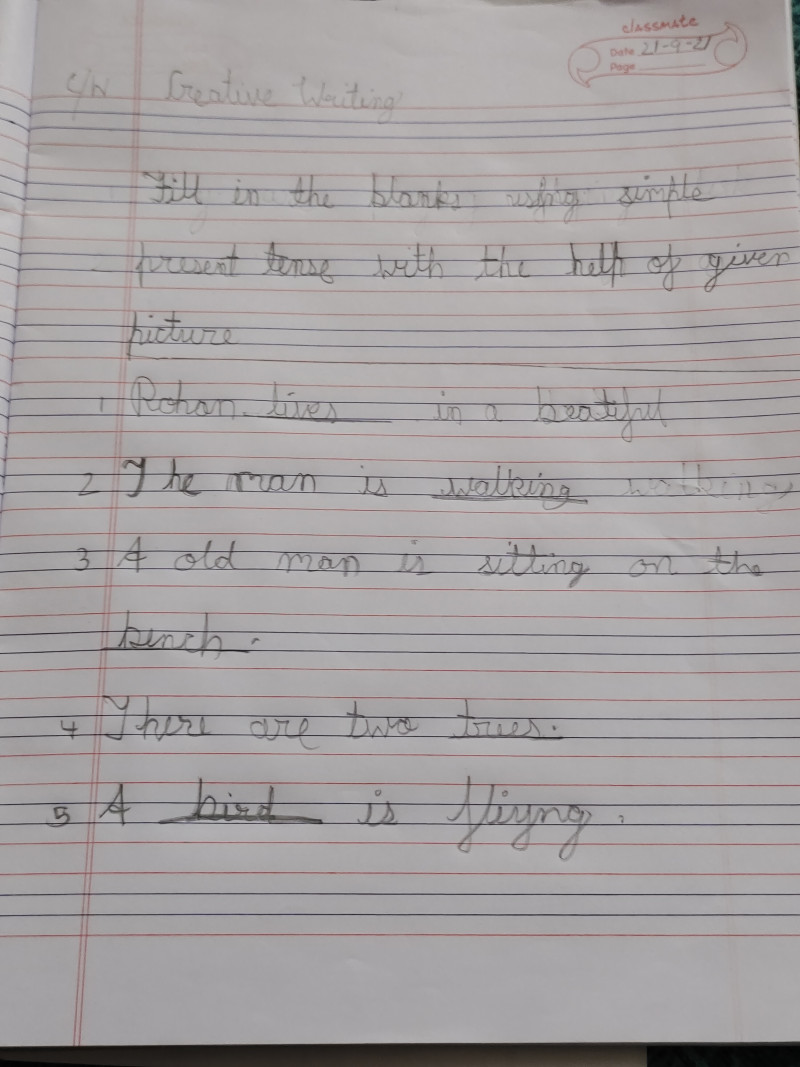 classmate
Date 21-9-21
Page
C/W Creative Writing
Fill in the blanks using simple
present tense with the help of given
picture
1 Rohan lives in a beatiful
2 The man is walking walking
3 A old man is sitting on the
bench.
4 There are two trees.
5 A bird is fliyng.